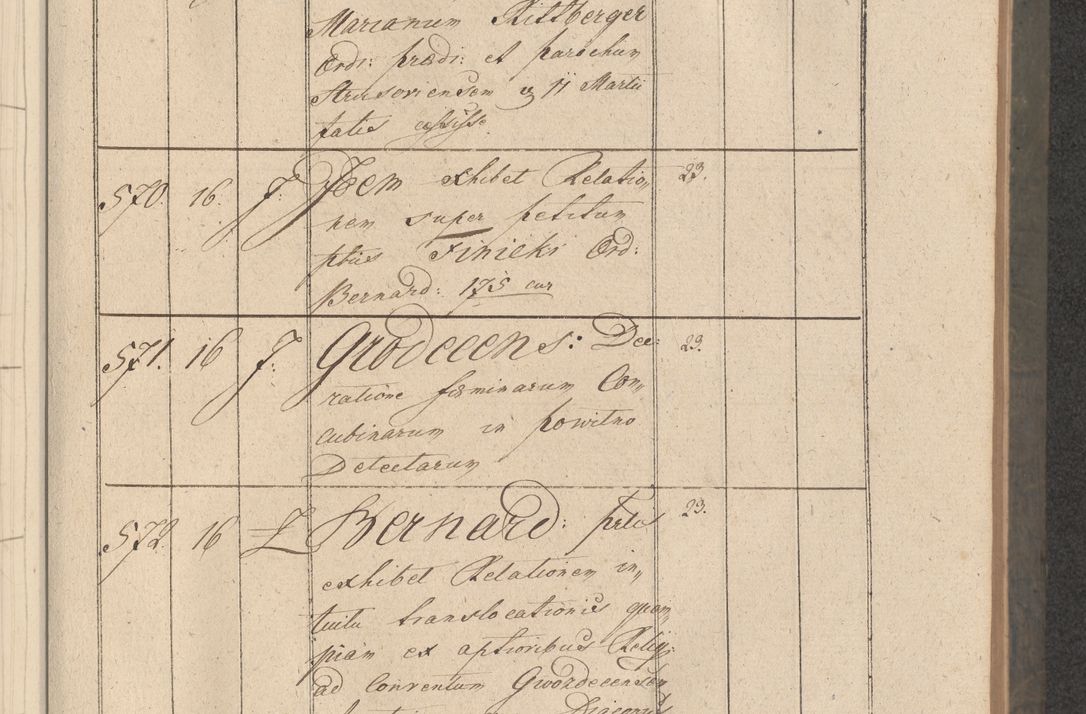 Marianum Rittberger
Ordi: prædi: et parochum
Strusoviensem 11 Martii
fatis cessisse.
570. 16. J: Idem exhibet Relatio„ 23.
nem super petitum
ptus Finicki Ord:
Bernard: 175 cur
571. 16 J: Grodecen s: Dec: 23.
ratione fæminarum Con„
cubinarum in powitno
Detectarum
572. 16 L Bernard: prlus 23.
exhibet Relationem in„
tuitu translocationis quem
piam ex aptioribus Relig:
ad Conventum Gwozdecensem
Diaconus